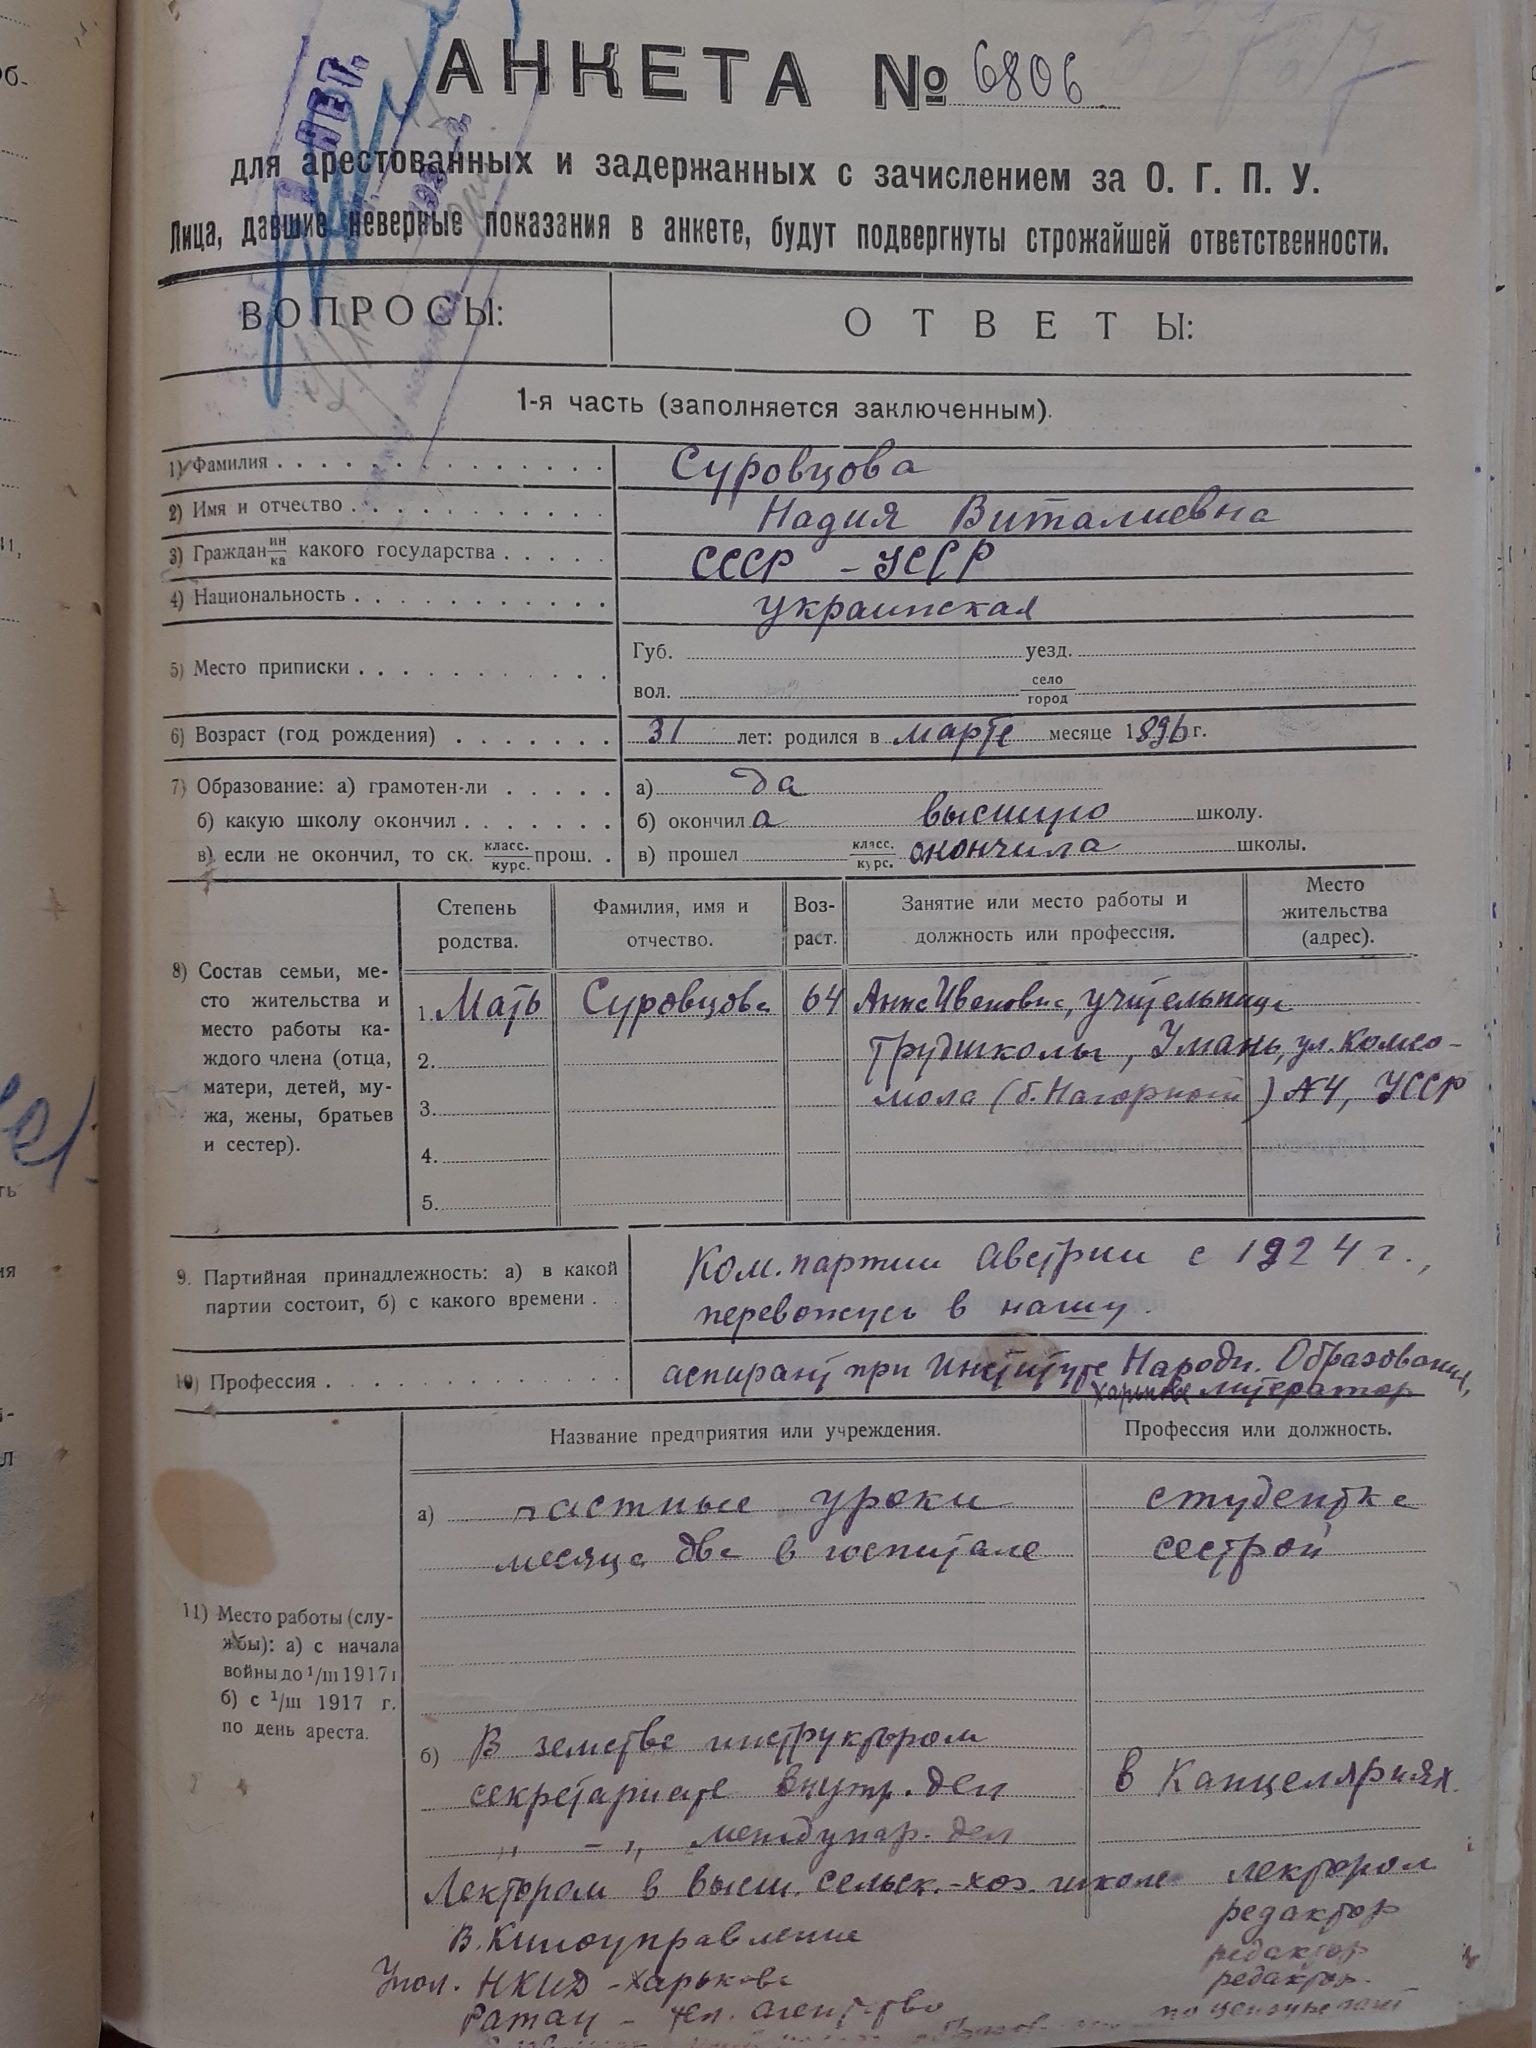 АНКЕТА № 6806
для арестованных и задержанных с зачислением за О. Г. П. У.
Лица, давшие неверные показания в анкете, будут подвергнуты строжайшей ответственности.
ВОПРОСЫ:
ОТВЕТЫ:
1-я часть (заполняется заключенным).
1) Фамилия
Суровцова
2) Имя и отчество
Надия Виталиевна
3) Граждан ин/ка какого государства
СССР – УССР
4) Национальность
украинская
5) Место приписки
Губ. уезд.
вол. село/город
6) Возраст (год рождения)
31 лет: родился в марте месяце 1896 г.
7) Образование: а) грамотен-ли
а) да
б) какую школу окончил
б) окончила высшую школу.
в) если не окончил, то ск. класс./курс. прош.
в) прошел класс./курс. окончила школы.
Степень родства.
Фамилия, имя и отчество.
Воз-раст.
Занятие или место работы и должность или профессия.
Место жительства (адрес).
8) Состав семьи, ме-
сто жительства и
место работы ка-
ждого члена (отца,
матери, детей, му-
жа, жены, братьев
и сестер).
1. Мать Суровцова 64 Анна Ивановна, учительница
2. Трудшколы, Умань, ул. Комсо-
3. мола (б. Нагорная) №4, УССР
4.
5.
9. Партийная принадлежность: а) в какой
партии состоит, б) с какого времени
Ком. партии Австрии с 1924 г.,
перевожусь в нашу.
10) Профессия
аспирант при Институте Народн. Образования,
Харькове литератор
Название предприятия или учреждения.
Профессия или должность.
11) Место работы (слу-
жбы): а) с начала
войны до 1/III 1917 г
б) с 1/III 1917 г.
по день ареста.
а) частные уроки студентка
месяца два в госпитале сестрой
б) В земстве инструктором
секретариате внутр. дел в Канцеляриях.
„ – „ междунар. дел
Лектором в высш. сельск.-хоз. школе лектором
В. Киноуправление редактор
Упол. НКИД – Харькове редактор
Ратау – тел. агентство редактор.